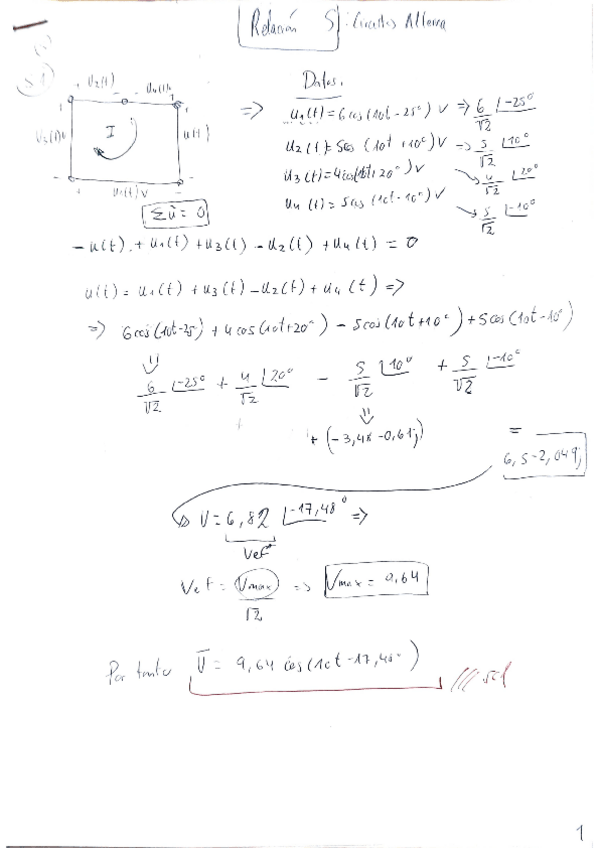 Relación 5: Circuitos Alterna
Datos.
+ u2(t) - - u4(t)
u3(t) I u(t)
u1(t) V
=> u1(t) = 6 cos (10t - 25°) V => 6/√2 ∠-25°
u2(t) = 5cos (10t + 10°) V -> 5/√2 ∠10°
u3(t) = 4cos(10t + 20°) V -> 4/√2 ∠20°
u4(t) = 5cos (10t - 10°) V -> 5/√2 ∠-10°
Σu = 0
- u(t) + u1(t) + u3(t) - u2(t) + u4(t) = 0
u(t) = u1(t) + u3(t) - u2(t) + u4(t) =>
=> 6cos(10t - 25) + 4cos(10t + 20°) - 5cos(10t + 10°) + 5cos(10t - 10°)
6/√2 ∠-25° + 4/√2 ∠20° - 5/√2 ∠10° + 5/√2 ∠-10°
+ (-3,48 - 0,61j) =
6,5 - 2,049j
V = 6,82 ∠-17,48° =>
Vef
Vef = Vmax/√2 => Vmax = 9,64
Por tanto V = 9,64 cos(10t - 17,48°) /// sol
1